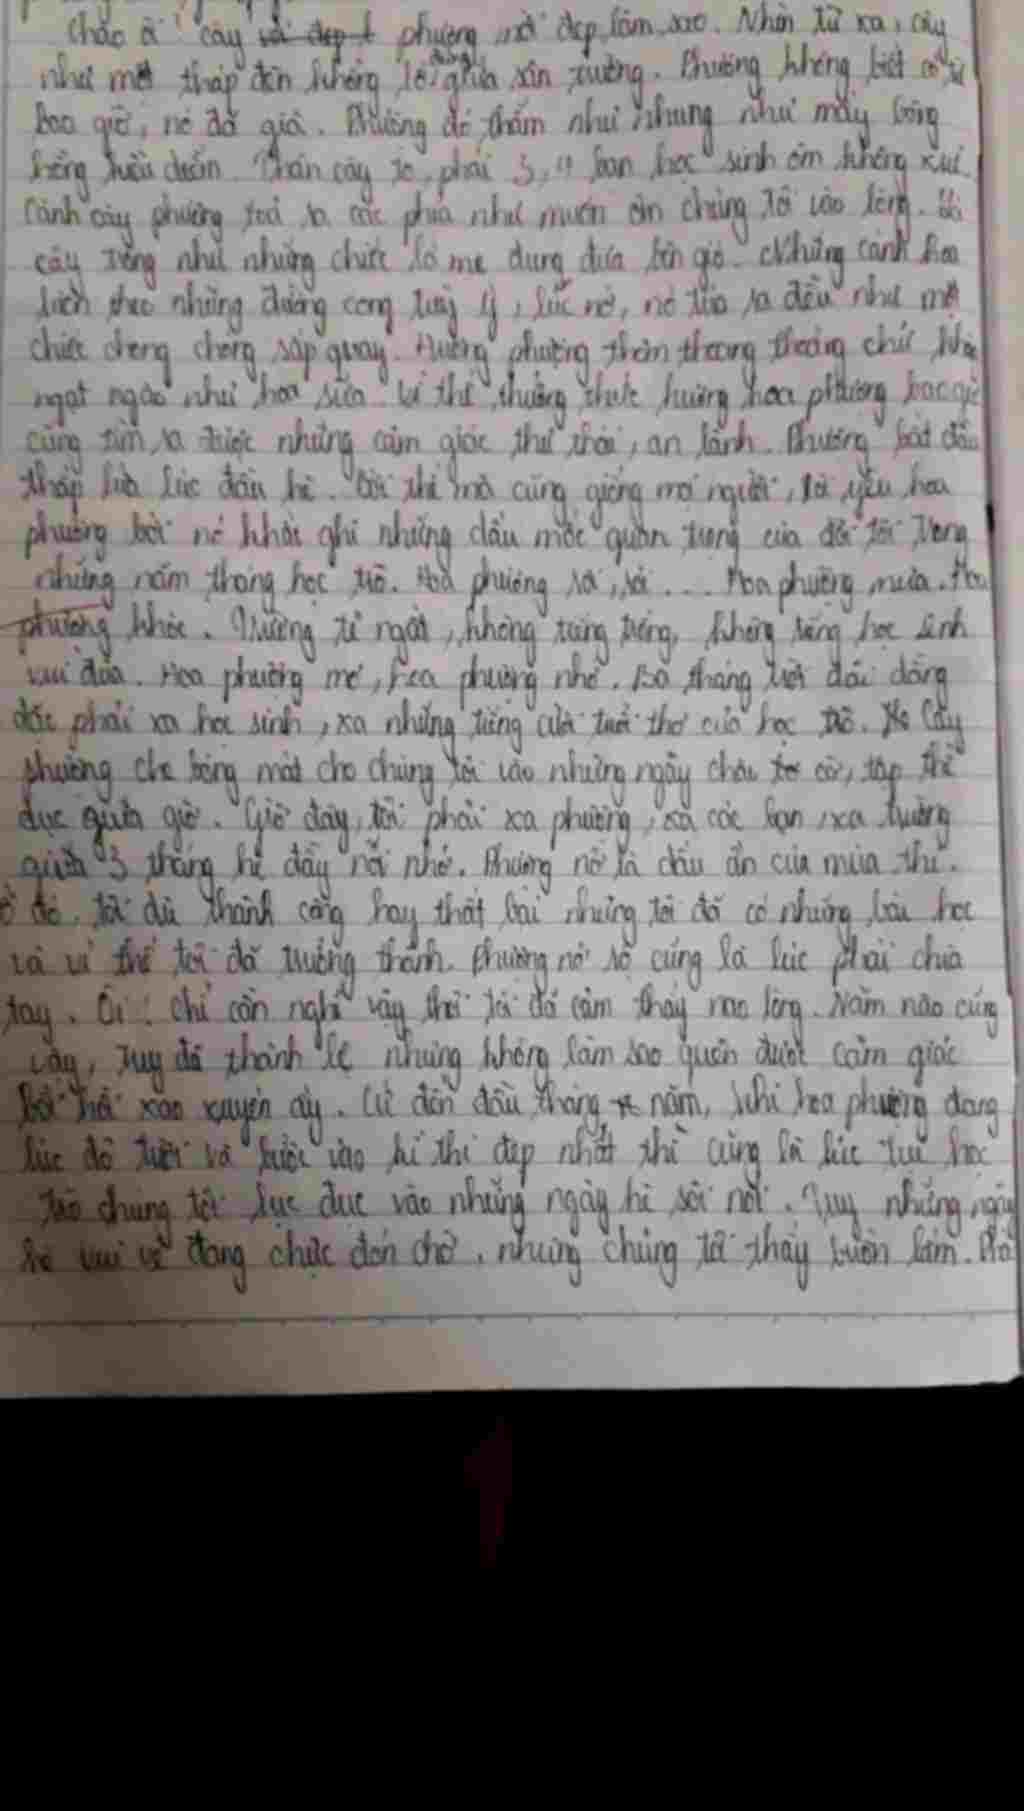 Chao ôi! cây phượng mới đẹp làm sao. Nhìn từ xa, cây
như một tháp đèn khổng lồ đứng giữa sân trường. Phượng không biết có từ
bao giờ, nó đã già. Phượng đỏ thắm như nhung như mấy bông
hồng kiều diễm. Thân cây to, phải 3, 4 bạn học sinh ôm không xuể.
Cành cây phượng toả ra các phía như muốn ôm chúng tôi vào lòng. Lá
cây trông như những chiếc lá me đung đưa bên gió. Những cánh hoa
theo những đường cong tuỳ ý, lúc nở, nó toả ra đều như một
chiếc chong chóng sắp quay. Hương phượng thơm thoang thoảng chứ không
ngạt ngào như hoa sữa. Vì thế, thưởng thức hương hoa phượng bao giờ
cũng tìm ra được những cảm giác thư thái, an lành. Phượng bắt đầu
thắp lửa lúc đầu hè. Bởi thế mà cũng giống mọi người, tôi yêu hoa
phượng bởi nó khắc ghi những dấu mốc quan trọng của đời tôi trong
những năm tháng học trò. Hoa phượng rơi, rơi... Hoa phượng mưa. Hoa
phượng khóc. Trường tẻ ngắt, không tiếng trống, không tiếng học sinh
vui đùa. Hoa phượng mơ, hoa phượng nhớ. Ba tháng trời dài dằng
dặc phải xa học sinh, xa những tiếng cười tuổi thơ của học trò. Cây
phượng che bóng mát cho chúng tôi vào những ngày chào cờ, tập thể
dục giữa giờ. Giờ đây, tôi phải xa phượng, xa các bạn, xa trường
giữa 3 tháng hè đầy nỗi nhớ. Phượng nở là dấu ấn của mùa thi.
Ở đó, tôi dù thành công hay thất bại nhưng tôi đã có những bài học
và vì thế tôi đã trưởng thành. Phượng nở rộ cũng là lúc phải chia
tay. Ôi! Chỉ cần nghĩ vậy thôi tôi đã cảm thấy nao lòng. Năm nào cũng
vậy, tuy đã thành lệ nhưng không làm sao quên được cảm giác
bồi hồi xao xuyến ấy. Cứ đến đầu tháng năm, khi hoa phượng đang
lúc đỏ tươi và bước vào kì thi đẹp nhất thì cũng là lúc tụi học
trò chúng tôi lục đục vào những ngày hè sôi nổi. Tuy những ngày
hè vui vẻ đang chực đón chờ, nhưng chúng tôi thấy buồn lắm.